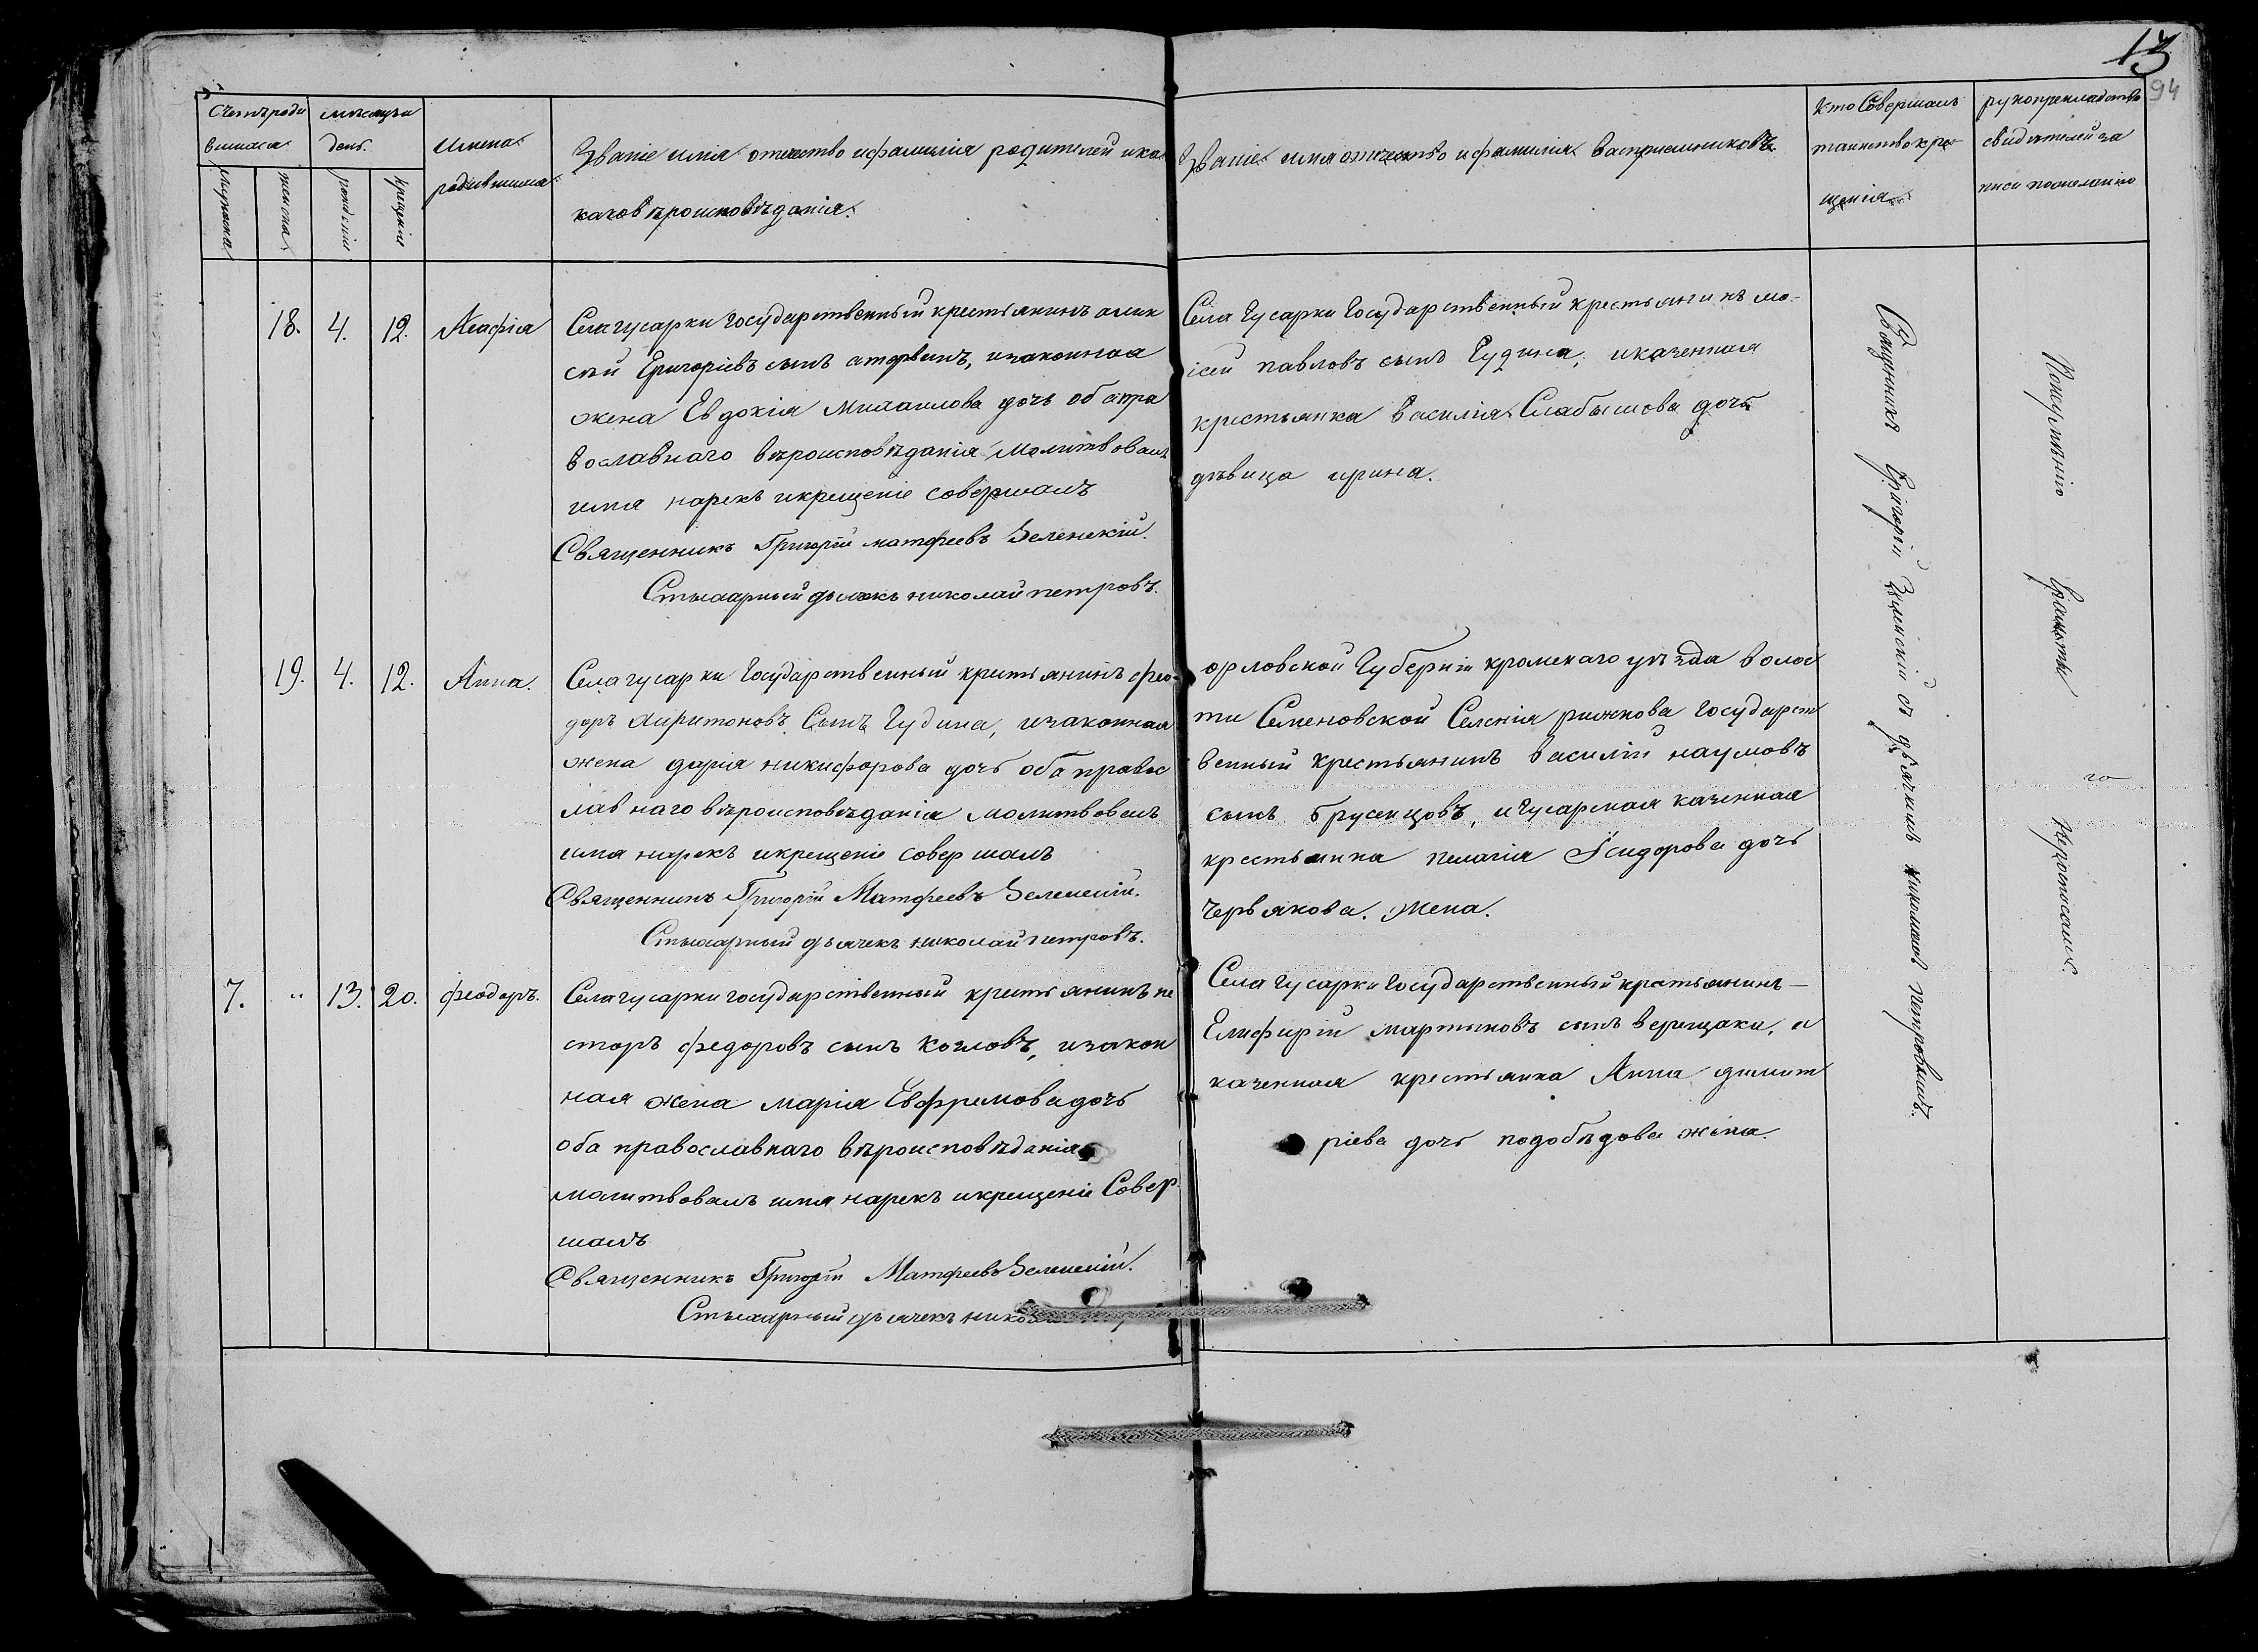 13
94
Счетъ роди
вшихся
мѣсяцъ и
день.
имена
родившихся
Званіе имя отчество и фамилія родителей и ка
кагов вѣроисповѣданія.
Званіе имя отчество и фамилія воспріемниковъ
кто Совершалъ
таинство кре
щенія
рукоприкладство
свидѣтелей за
писи по желанію
мужска
женска
рожденіе
крещеніе
18. 4. 12. Агафія
Села гусарки государственный крестьянинъ алек
сѣй Григоріевъ сынъ , и законная
жена Евдокія Михаилова дочь оба пра
вославнаго вѣроисповѣданія Молитвовалъ
имя нарекъ и крещеніе совершалъ
Священникъ Григорій матфеевъ Зеленскій.
Стихарный дьячекъ николай петровъ.
Села Гусарки Государственный крестьянинъ мо-
ісей павловъ сынъ Гудина, и казенная
крестьянка Василія Слабышова дочь
дѣвица ирина.
19. 4. 12. Анна.
Села гусарки Государственный крестьянинъ фео-
доръ харитоновъ Сынъ Гудина, и законная
жена дарія никифорова дочь оба правос
лавнаго вѣроисповѣданія молитвовалъ
имя нарекъ и крещеніе совершалъ
Священникъ Григорій Матфеевъ Зеленскій.
Стихарный дьячекъ николай петровъ.
орловской Губерніи кромскаго уѣзда волос
ти Семеновской Селенія рыжкова государст
венный крестьянинъ василій наумовъ
сынъ брусенцовъ, и гусарская казенная
крестьянка пелагія Ісидорова дочь
Червякова. жена.
7. " 13. 20. феодоръ.
Села гусарки государственный крестьянинъ не
сторъ федоровъ сынъ козловъ, и закон
ная жена марія Евфремова дочь
оба православнаго вѣроисповѣданія
молитвовалъ имя нарекъ и крещеніе Совер
шалъ
Священникъ Григорій Матфеевъ Зеленскій.
Стихарный дьячекъ нико
Села гусарки Государственный крестьянинъ—
Елифирій мартыновъ сынъ верещака, и
казенная крестьянка Анна димит
ріева дочь подобѣдова жена.
Священникъ Григорій Зеленскій съ дьячкомъ николаемъ Петровымъ.
По неумѣнію грамоты го нерасписался.